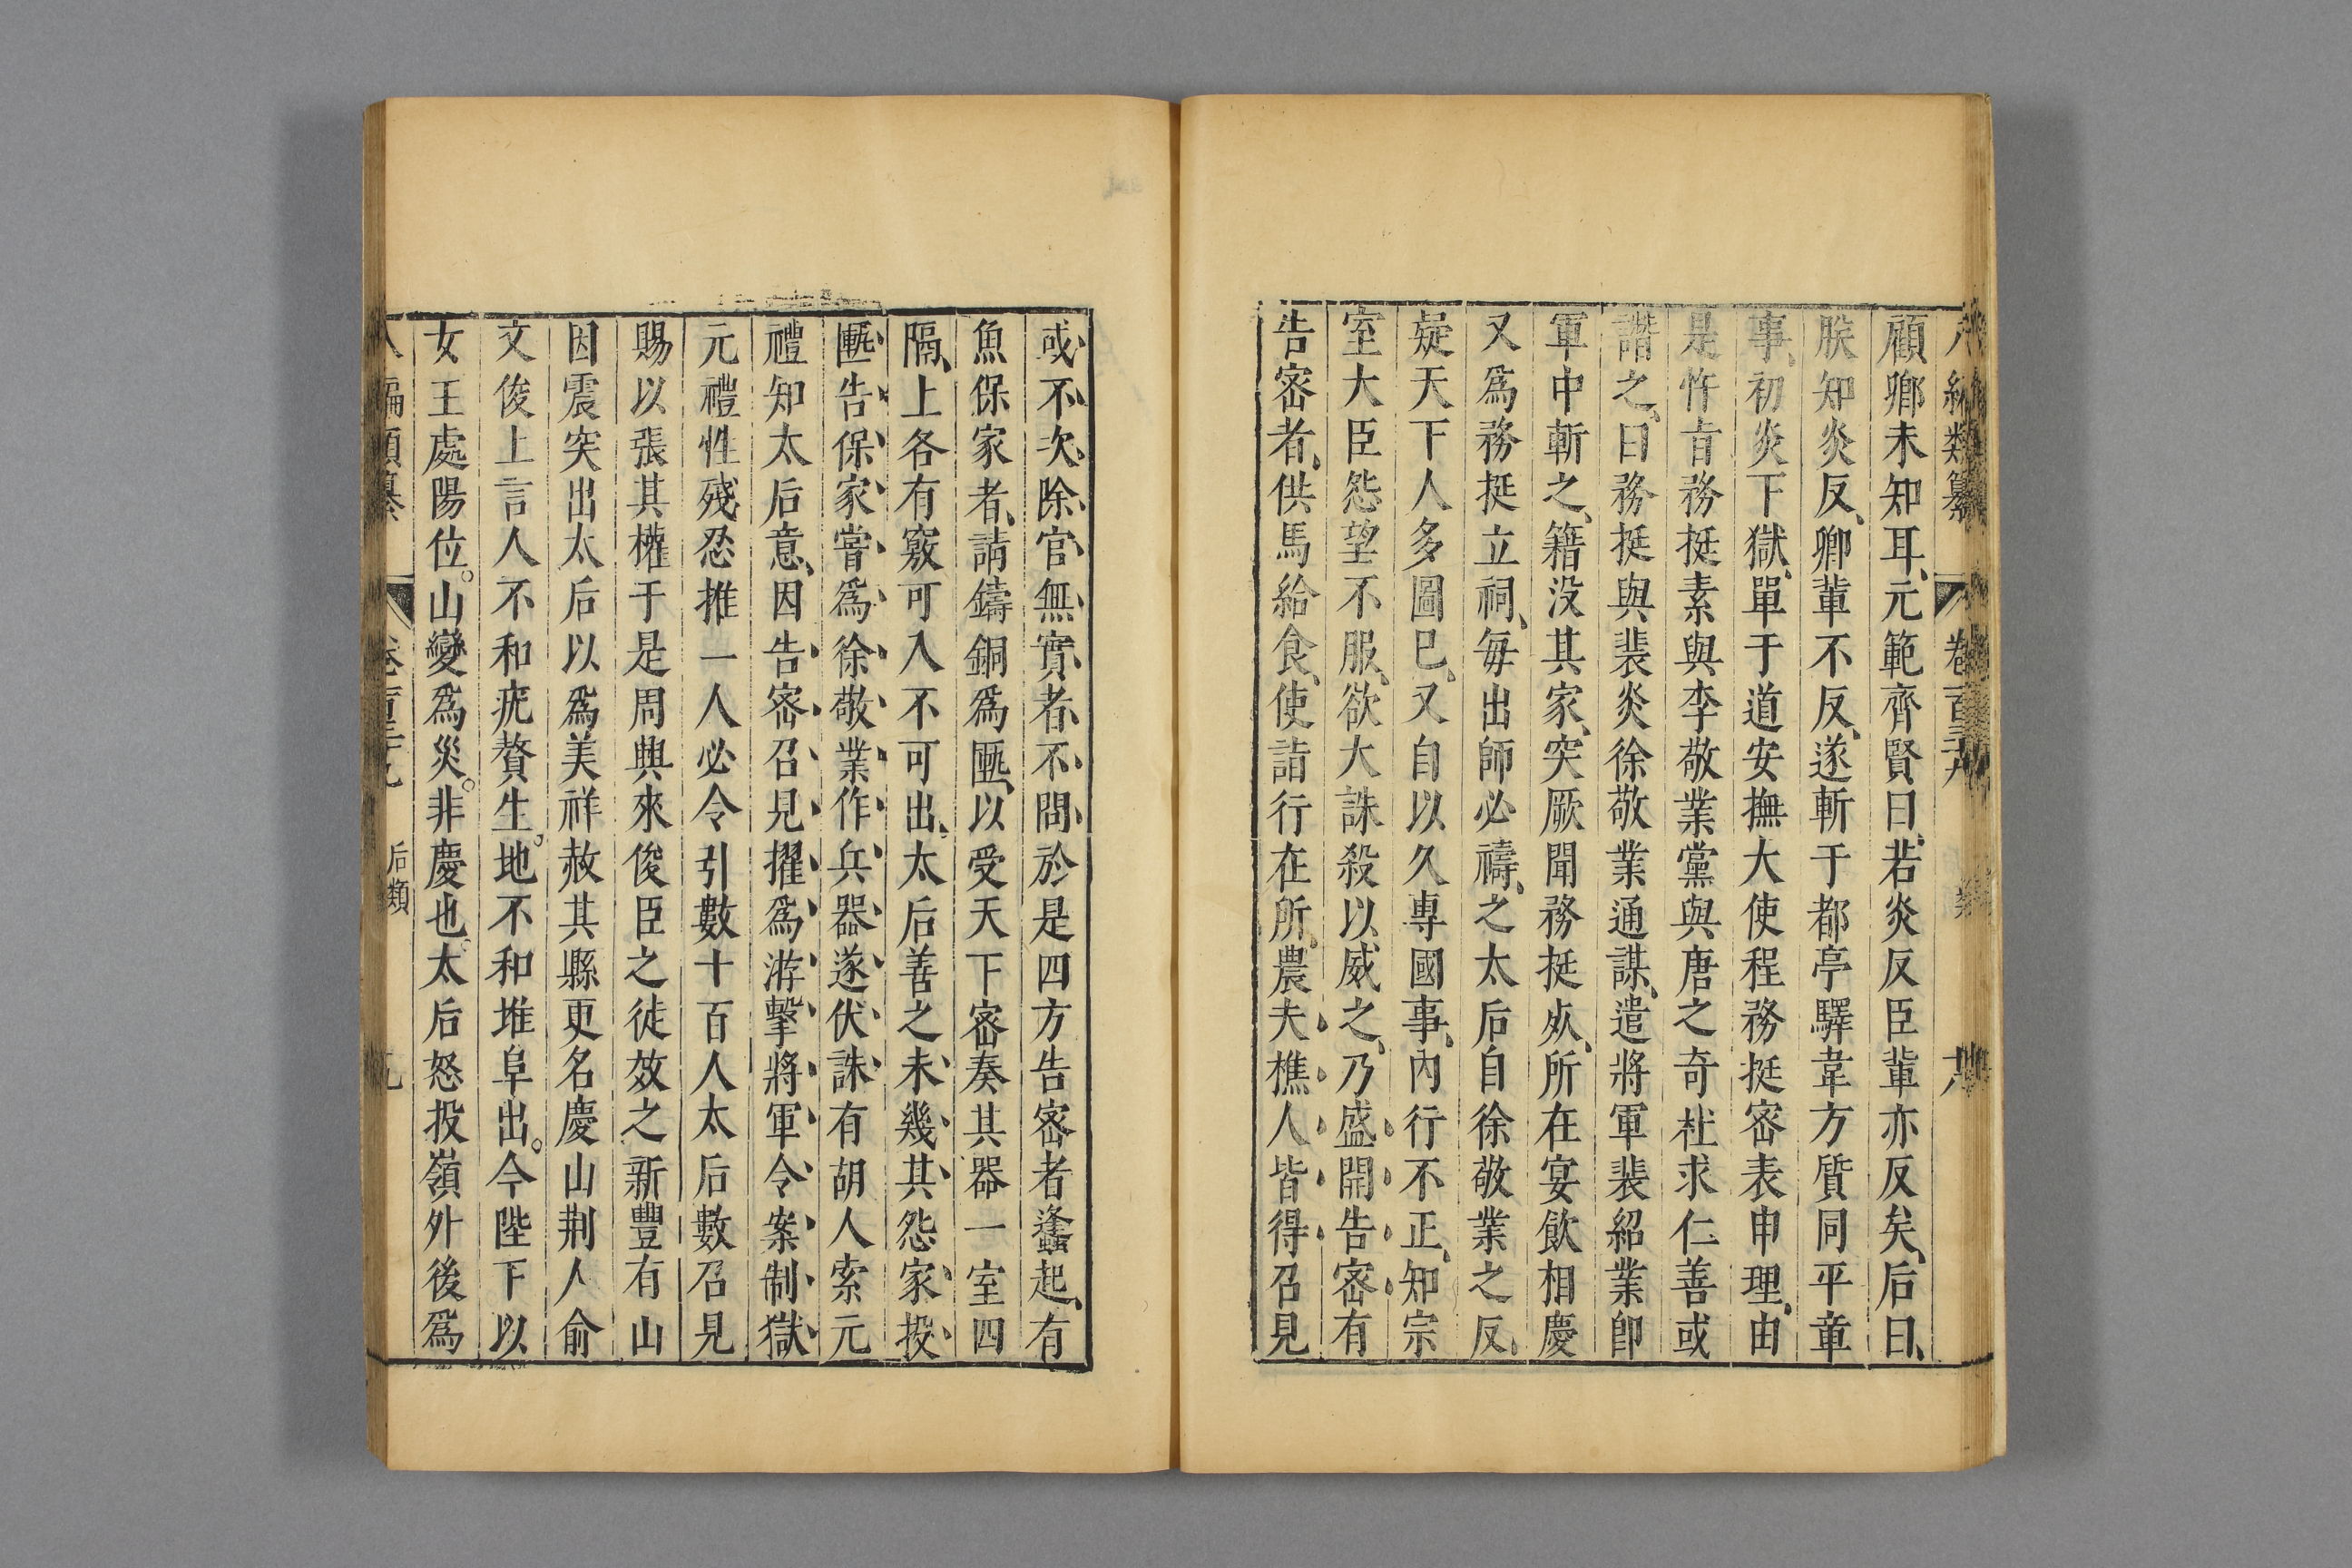 八編類纂 卷百三十九
顧卿未知耳、元範齊賢曰、若炎反臣輩亦反矣、后曰、
朕知炎反、卿輩不反、遂斬于都亭驛韋方質同平章
事、初炎下獄、單于道安撫大使程務挺密表申理、由
是忤旨務挺素與李敬業黨與唐之奇杜求仁善或
譖之、曰務挺與裴炎徐敬業通謀、遣將軍裴紹業卽
軍中斬之、籍没其家、突厥聞務挺死、所在宴飲相慶
又爲務挺立祠、每出師必禱、之太后自徐敬業之反、
疑天下人多圖巳、又自以久專國事、內行不正、知宗
室大臣怨望不服、欲大誅殺以威之、乃盛開告密有
告密者、供馬給食、使詣行在所、農夫樵人皆得召見
或不次除官無實者不問於是四方告密者蠭起、有
魚保家者、請鑄銅爲匭、以受天下密奏其器一室四
隔、上各有竅可入不可出、太后善之未幾其怨家投
匭告保家嘗爲徐敬業作兵器遂伏誅有胡人索元
禮知太后意、因告密召見擢爲游擊將軍令案制獄
元禮性殘忍推一人必令引數十百人太后數召見
賜以張其權于是周興來俊臣之徒效之新豐有山
因震突出太后以爲美祥赦其縣更名慶山荆人俞
文俊上言人不和疣贅生。地不和堆阜出。今陛下以
女王處陽位。山變爲災。非慶也太后怒投嶺外後爲
編類纂 后類